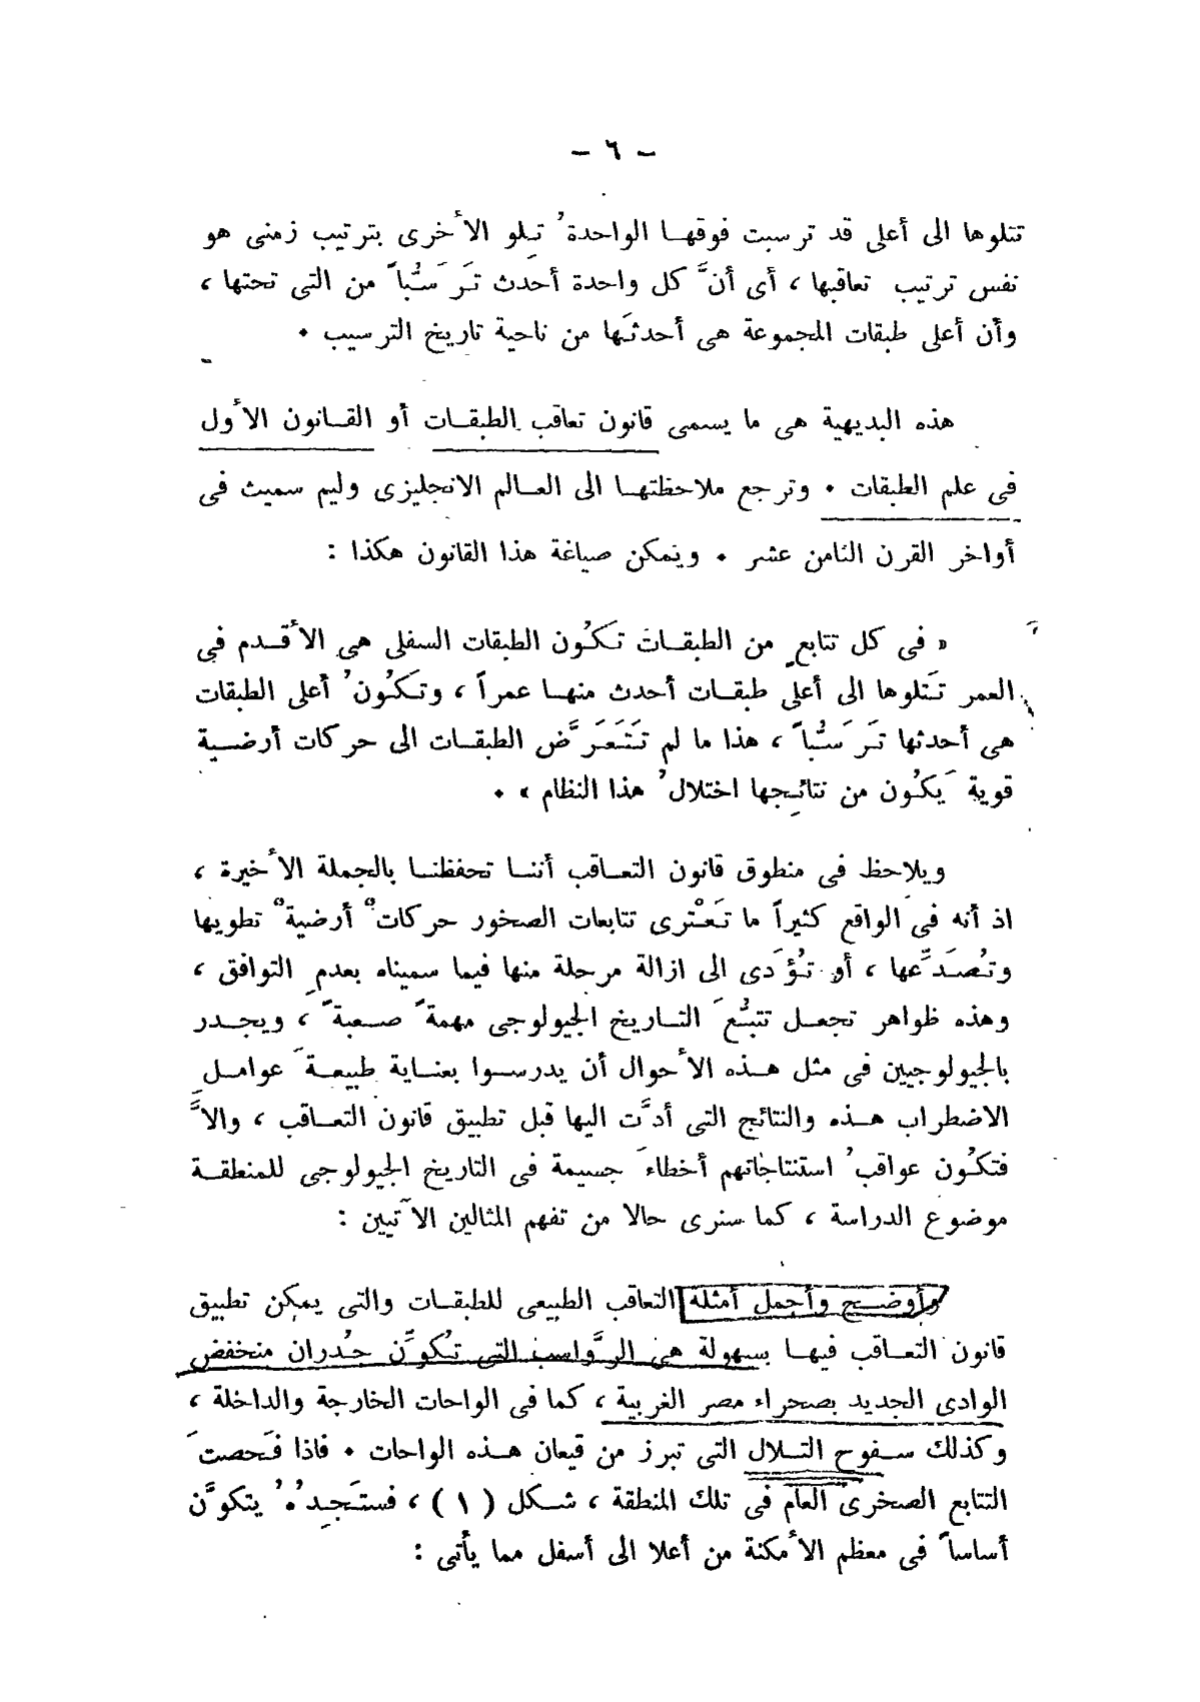 — ٦ —
تتلوها الى أعلى قد ترسبت فوقها الواحدةُ تِلو الأخرى بترتيب زمنى هو
نفس ترتيب تعاقبها ، أى أنَّ كل واحدة أحدث تَرَسُّباً من التى تحتها ،
وأن أعلى طبقات المجموعة هى أحدثَها من ناحية تاريخ الترسيب .
هذه البديهية هى ما يسمى قانون تعاقب الطبقات أو القانون الأول
فى علم الطبقات . وترجع ملاحظتها الى العالم الانجليزى وليم سميث فى
أواخر القرن الثامن عشر . ويمكن صياغة هذا القانون هكذا :
« فى كل تتابعٍ من الطبقات تكُون الطبقات السفلى هى الأقدم فى
العمر تَتلوها الى أعلى طبقات أحدث منها عمراً ، وتكُونُ أعلى الطبقات
هى أحدثها تَرَسُّباً ، هذا ما لم تَتَعَرَّض الطبقات الى حركات أرضية
قوية يَكُون من نتائجِها اختلالُ هذا النظام » .
ويلاحظ فى منطوق قانون التعاقب أننا تحفظنا بالجملة الأخيرة ،
اذ أنه فى الواقع كثيراً ما تَعْترى تتابعات الصخور حركاتٌ أرضيةٌ تطويها
وتُصَدِّعها ، أو تُؤَدى الى ازالة مرحلة منها فيما سميناه بعدمِ التوافق ،
وهذه ظواهر تجعل تتبُّعَ التاريخ الجيولوجى مهمةً صعبةً ، ويجدر
بالجيولوجيين فى مثل هذه الأحوال أن يدرسوا بعناية طبيعةَ عواملِ
الاضطراب هذه والنتائج التى أدَّت اليها قبل تطبيق قانون التعاقب ، والاَّ
فتكُون عواقبُ استنتاجاتهم أخطاءَ جسيمة فى التاريخ الجيولوجى للمنطقة
موضوع الدراسة ، كما سنرى حالا من تفهم المثالين الآتيين :
وأوضح وأجمل أمثلة التعاقب الطبيعى للطبقات والتى يمكن تطبيق
قانون التعاقب فيها بسهولة هى الرَّواسب التى تُكوِّن جُدران منخفض
الوادى الجديد بصحراء مصر الغربية ، كما فى الواحات الخارجة والداخلة ،
وكذلك سفوح التلال التى تبرز من قيعان هذه الواحات . فاذا فَحصتَ
التتابع الصخرى العام فى تلك المنطقة ، شكل ( ١ ) ، فستَجِدُهُ يتكوَّن
أساساً فى معظم الأمكنة من أعلا الى أسفل مما يأتى :